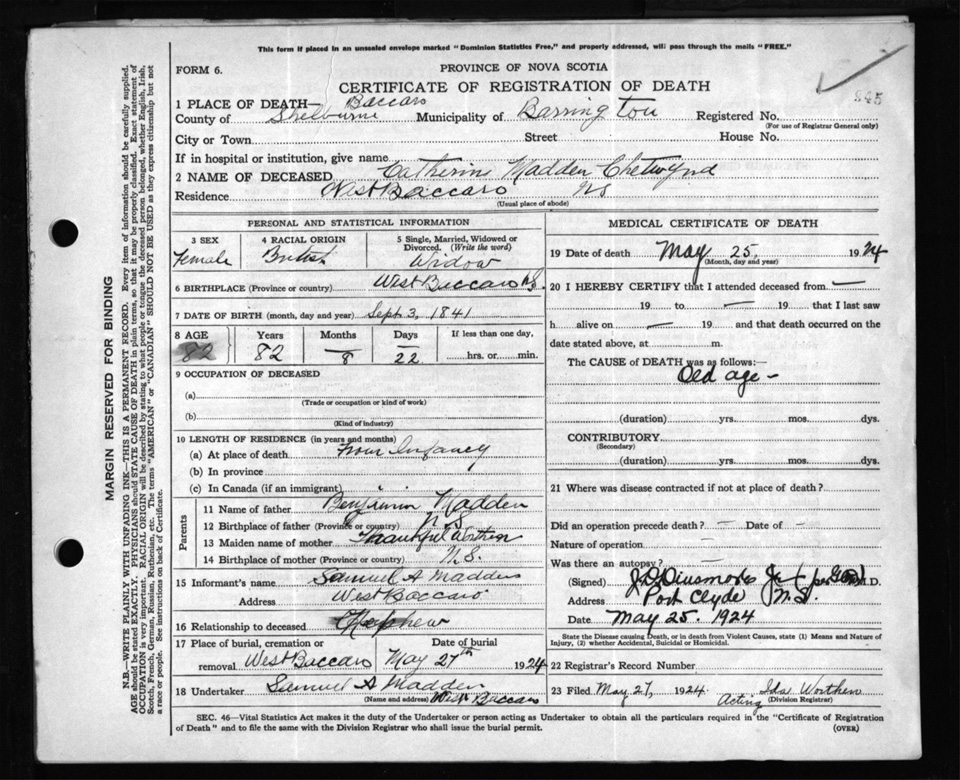 This form if placed in an unsealed envelope marked "Dominion Statistics Free," and properly addressed, will pass through the mails "FREE."
FORM 6.
PROVINCE OF NOVA SCOTIA
CERTIFICATE OF REGISTRATION OF DEATH
845
1 PLACE OF DEATH— Baccaro
County of Shelburne Municipality of Barrington Registered No.
(For use of Registrar General only)
City or Town Street House No.
If in hospital or institution, give name
2 NAME OF DECEASED Catherine Madden Chetwynd
Residence West Baccaro NS
(Usual place of abode)
PERSONAL AND STATISTICAL INFORMATION
3 SEX 4 RACIAL ORIGIN 5 Single, Married, Widowed or Divorced. (Write the word)
Female British Widow
6 BIRTHPLACE (Province or country) West Baccaro N.S.
7 DATE OF BIRTH (month, day and year) Sept 3, 1841
8 AGE Years Months Days If less than one day,
82 82 8 22 hrs. or min.
9 OCCUPATION OF DECEASED
(a)
(Trade or occupation or kind of work)
(b)
(Kind of industry)
10 LENGTH OF RESIDENCE (in years and months)
(a) At place of death From Infancy
(b) In province
(c) In Canada (if an immigrant)
Parents
11 Name of father Benjamin Madden
12 Birthplace of father (Province or country) N S
13 Maiden name of mother Thankful Worthen
14 Birthplace of mother (Province or country) N.S.
15 Informant's name Samuel A Madden
Address West Baccaro
16 Relationship to deceased Nephew
17 Place of burial, cremation or removal Date of burial
West Baccaro May 27th 1924
18 Undertaker Samuel A Madden
(Name and address) West Baccaro
MEDICAL CERTIFICATE OF DEATH
19 Date of death May 25, 1924
(Month, day and year)
20 I HEREBY CERTIFY that I attended deceased from —
19 to — 19 that I last saw
h alive on — 19 and that death occurred on the
date stated above, at m.
The CAUSE of DEATH was as follows:—
Old age –
(duration) yrs. mos. dys.
CONTRIBUTORY
(Secondary)
(duration) yrs. mos. dys.
21 Where was disease contracted if not at place of death?
Did an operation precede death? – Date of –
Nature of operation –
Was there an autopsy? –
(Signed) J D Dinsmore Jr M.D.
Address Port Clyde N.S.
Date May 25. 1924
State the Disease causing Death, or in death from Violent Causes, state (1) Means and Nature of Injury, (2) whether Accidental, Suicidal or Homicidal.
22 Registrar's Record Number
23 Filed May 27, 1924. Acting Ida Worthen
(Division Registrar)
SEC. 46—Vital Statistics Act makes it the duty of the Undertaker or person acting as Undertaker to obtain all the particulars required in the "Certificate of Registration
of Death" and to file the same with the Division Registrar who shall issue the burial permit. (OVER)
MARGIN RESERVED FOR BINDING
N.B.—WRITE PLAINLY WITH UNFADING INK—THIS IS A PERMANENT RECORD. Every item of information should be carefully supplied.
AGE should be stated EXACTLY. PHYSICIANS should STATE CAUSE OF DEATH in plain terms, so that it may be properly classified. Exact statement of
OCCUPATION is very important. RACIAL ORIGIN will be described by stating to what people or tongue the deceased person belonged, whether English, Irish,
Scotch, French, German, Russian, Ruthenian, etc. The terms "AMERICAN" or "CANADIAN" SHOULD NOT BE USED as they express citizenship but not
a race or people. See instructions on back of Certificate.